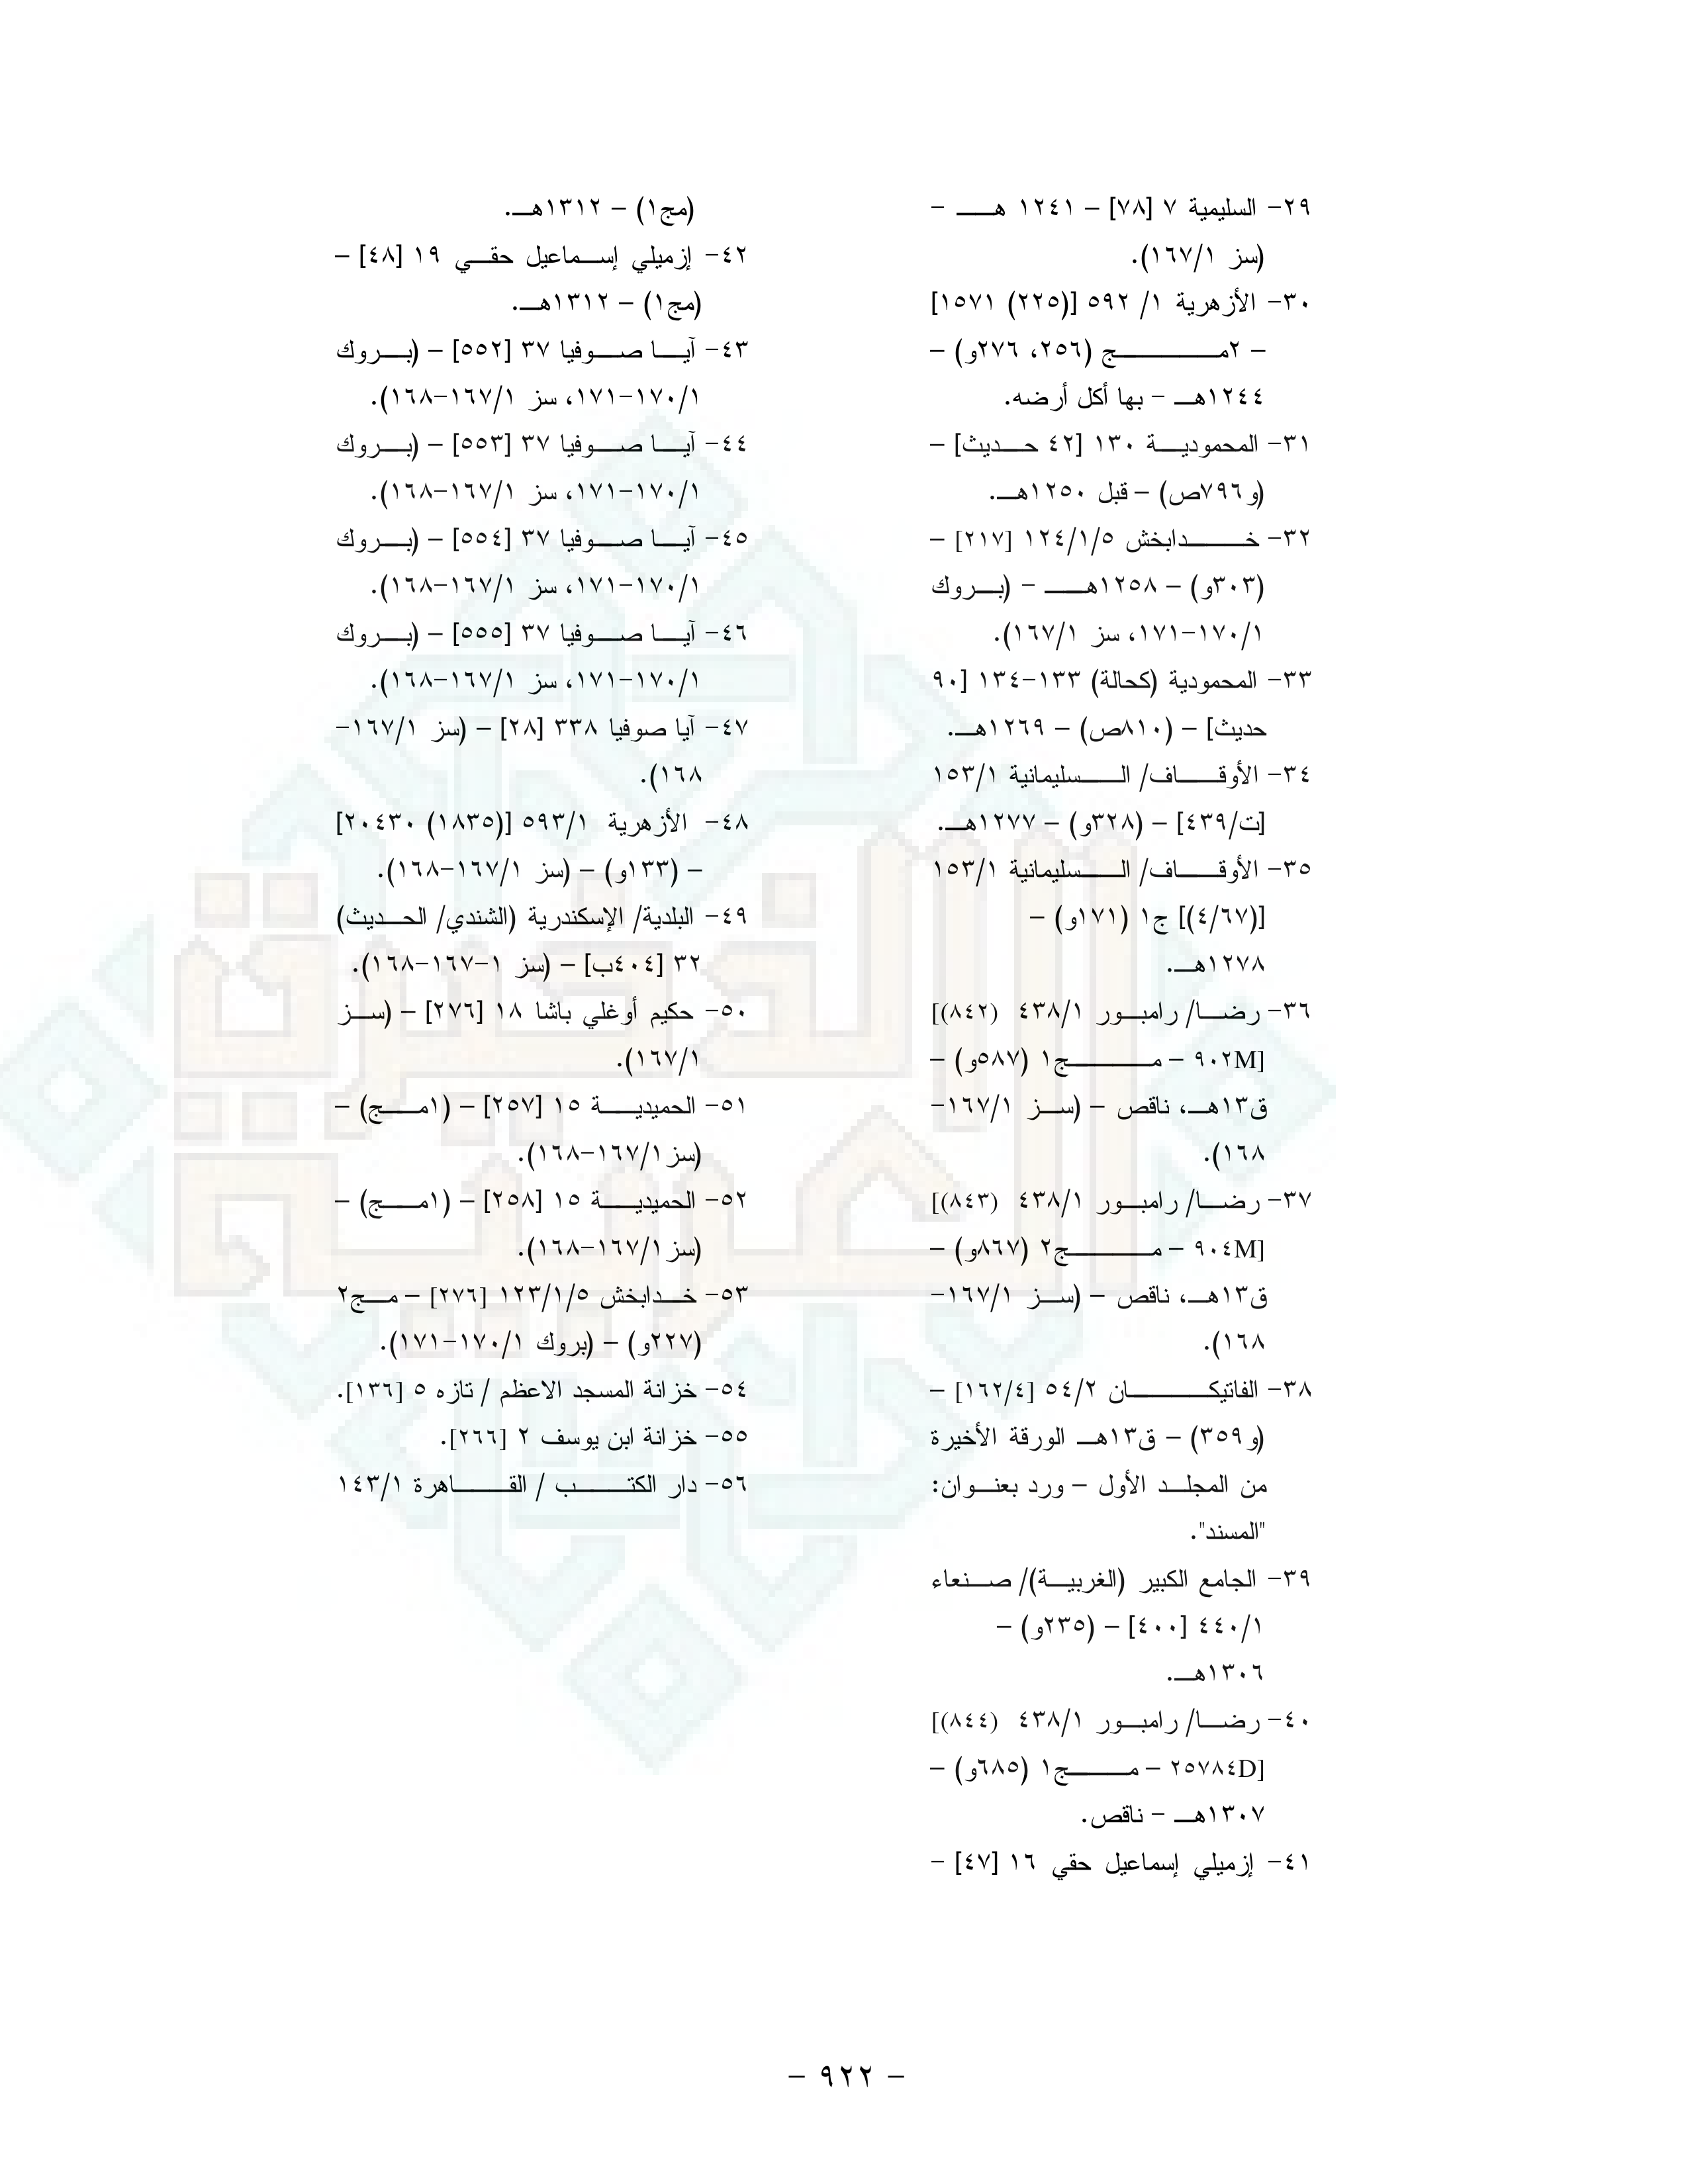 ٢٩- السليمية ٧ [٧٨] – ١٢٤١ هـ -
(سز ١/١٦٧).
٣٠- الأزهرية ١/ ٥٩٢ [(٢٢٥) ١٥٧١]
– ٢مج (٢٥٦، ٢٧٦و) –
١٢٤٤هـ - بها أكل أرضه.
٣١- المحمودية ١٣٠ [٤٢ حديث] –
(و٧٩٦ص) – قبل ١٢٥٠هـ.
٣٢- خدابخش ١٢٤/١/٥ [٢١٧] –
(٣٠٣و) – ١٢٥٨هـ - (بروك
١/١٧٠-١٧١، سز ١/١٦٧).
٣٣- المحمودية (كحالة) ١٣٣-١٣٤ [٩٠
حديث] – (٨١٠ص) – ١٢٦٩هـ.
٣٤- الأوقاف/ السليمانية ١٥٣/١
[ت/٤٣٩] – (٣٢٨و) – ١٢٧٧هـ.
٣٥- الأوقاف/ السليمانية ١٥٣/١
[(٤/٦٧)] ج١ (١٧١و) –
١٢٧٨هـ.
٣٦- رضا/ رامبور ٤٣٨/١ [(٨٤٢)
٩٠٢M] – مج١ (٥٨٧و) –
ق١٣هـ، ناقص – (سز ١/١٦٧-
١٦٨).
٣٧- رضا/ رامبور ٤٣٨/١ [(٨٤٣)
٩٠٤M] – مج٢ (٨٦٧و) –
ق١٣هـ، ناقص – (سز ١/١٦٧-
١٦٨).
٣٨- الفاتيكان ٥٤/٢ [١٦٢/٤] –
(و٣٥٩) – ق١٣هـ الورقة الأخيرة
من المجلد الأول – ورد بعنوان:
"المسند".
٣٩- الجامع الكبير (الغربية)/ صنعاء
١/٤٤٠ [٤٠٠] – (٢٣٥و) –
١٣٠٦هـ.
٤٠- رضا/ رامبور ٤٣٨/١ [(٨٤٤)
٢٥٧٨٤D] – مج١ (٦٨٥و) –
١٣٠٧هـ - ناقص.
٤١- إزميلي إسماعيل حقي ١٦ [٤٧] –
(مج١) – ١٣١٢هـ.
٤٢- إزميلي إسماعيل حقي ١٩ [٤٨] –
(مج١) – ١٣١٢هـ.
٤٣- آيا صوفيا ٣٧ [٥٥٢] – (بروك
١/١٧٠-١٧١، سز ١/١٦٧-١٦٨).
٤٤- آيا صوفيا ٣٧ [٥٥٣] – (بروك
١/١٧٠-١٧١، سز ١/١٦٧-١٦٨).
٤٥- آيا صوفيا ٣٧ [٥٥٤] – (بروك
١/١٧٠-١٧١، سز ١/١٦٧-١٦٨).
٤٦- آيا صوفيا ٣٧ [٥٥٥] – (بروك
١/١٧٠-١٧١، سز ١/١٦٧-١٦٨).
٤٧- آيا صوفيا ٣٣٨ [٢٨] – (سز ١/١٦٧-
١٦٨).
٤٨- الأزهرية ٥٩٣/١ [(١٨٣٥) ٢٠٤٣٠]
– (١٣٣و) – (سز ١/١٦٧-١٦٨).
٤٩- البلدية/ الإسكندرية (الشندي/ الحديث)
٣٢ [٤٠٤ب] – (سز ١-١٦٧-١٦٨).
٥٠- حكيم أوغلي باشا ١٨ [٢٧٦] – (سز
١/١٦٧).
٥١- الحميدية ١٥ [٢٥٧] – (١مج) –
(سز١/١٦٧-١٦٨).
٥٢- الحميدية ١٥ [٢٥٨] – (١مج) –
(سز١/١٦٧-١٦٨).
٥٣- خدابخش ١٢٣/١/٥ [٢٧٦] – مج٢
(٢٢٧و) – (بروك ١/١٧٠-١٧١).
٥٤- خزانة المسجد الاعظم / تازه ٥ [١٣٦].
٥٥- خزانة ابن يوسف ٢ [٢٦٦].
٥٦- دار الكتب / القاهرة ١٤٣/١
- ٩٢٢ -
الذخيرة
العربية